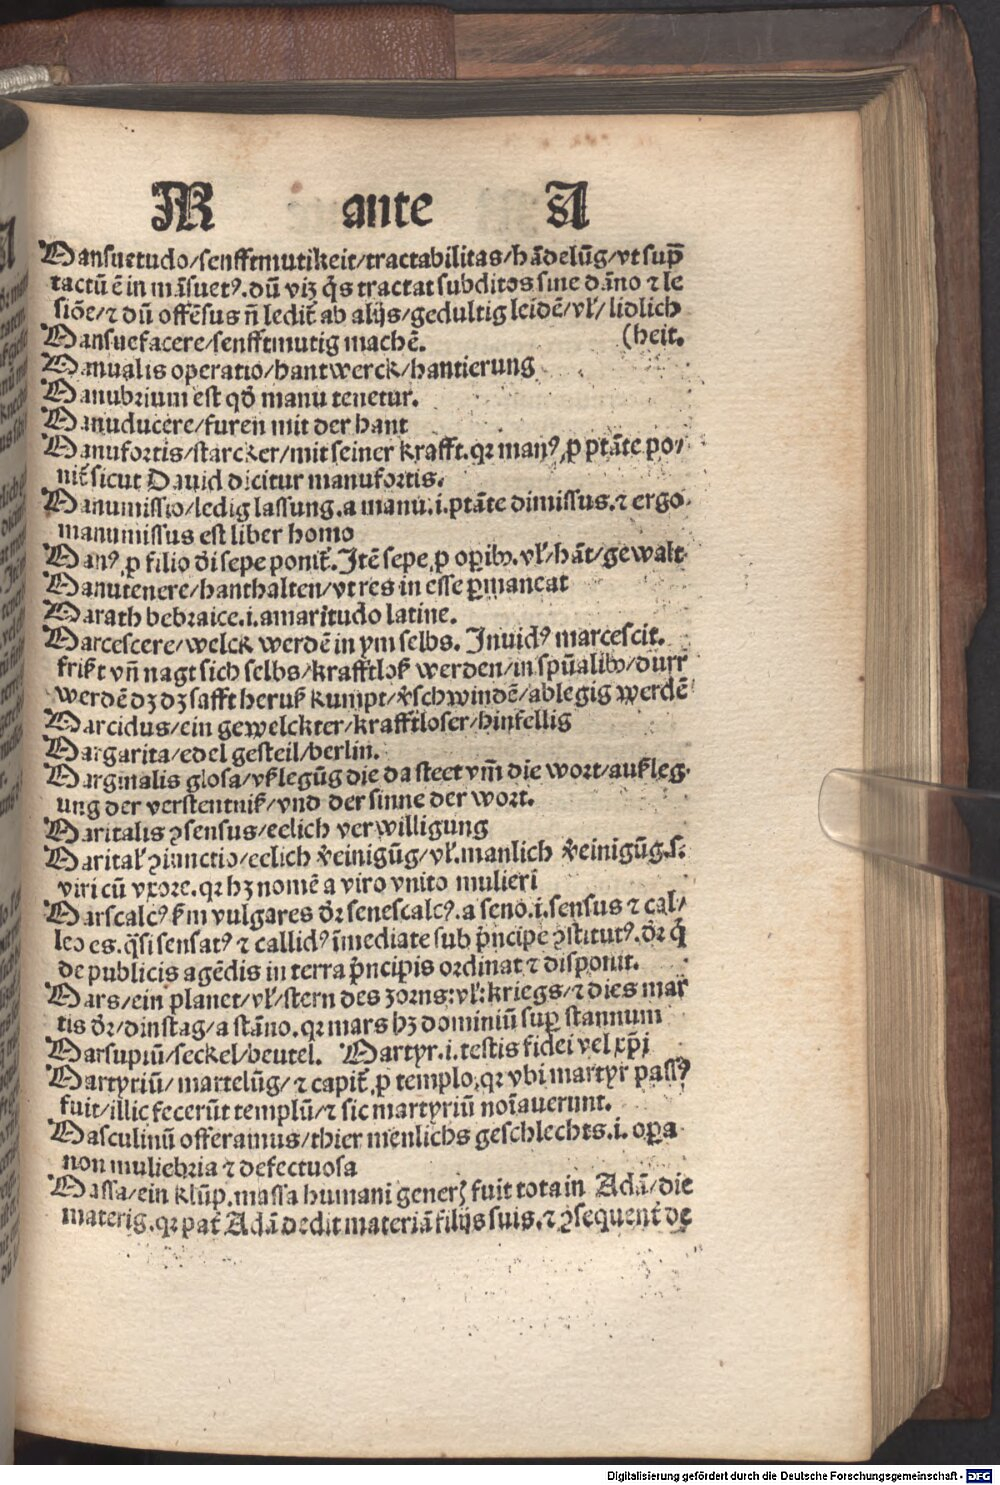 M ante A
Mansuetudo/senfftmutikeit/tractabilitas/hādelūg/vt sup̄
tactū ē in māsuetꝰ. dū viꝫ q̄s tractat subditos sine dāno ⁊ le
siōe/⁊ dū offēsus n̄ ledit̄ ab alijs/gedultig leidē/vl̓/lidlich
Mansuefacere/senfftmutig machē. (heit.
Manualis operatio/hantwerck/hantierung
Manubrium est qd̄ manu tenetur.
Manuducere/furen mit der hant
Manufortis/starcker/mit seiner krafft. qꝛ manꝰ ꝓ ptāte po⸗
nit̄ sicut Dauid dicitur manufortis.
Manumissio/ledig lassung. a manu. i. ptāte dimissus. ⁊ ergo
manumissus est liber homo
Manꝰ ꝓ filio dei sepe ponit̄. Itē sepe ꝓ oꝑibꝰ. vl̓/hāt/gewalt
Manutenere/hanthalten/vt res in esse ꝑmaneat
Marath hebraice. i. amaritudo latine.
Marcescere/welck werdē in ym selbs. Inuidꝰ marcescit.
frißt vn̄ nagt sich selbs/krafftloß werden/in spūalibꝰ/dürr
werdē dꝫ dꝫ safft heruß kumpt/v̄schwindē/ablegig werdē
Marcidus/ein gewelckter/krafftloser/hinfellig
Margarita/edel gesteil/berlin.
Marginalis glosa/vßlegūg die da steet vm̄ die wort/außleg⸗
ung der verstentniß/vnd der sinne der wort.
Maritalis ꝯsensus/eelich verwilligung
Marital̓ ꝯiunctio/eelich v̄einigūg/vl̓. manlich v̄einigūg. s.
viri cū vxore. qꝛ hꝫ nomē a viro vnito mulieri
Marscalcꝰ ẜm vulgares dr̄ senescalcꝰ. a seno. i. sensus ⁊ cal⸗
leo es. q̄si sensatꝰ ⁊ callidꝰ īmediate sub p̄ncipe ꝯstitutꝰ. dr̄ q̄
de publicis agēdis in terra p̄ncipis ordinat ⁊ disponit.
Mars/ein planet/vl̓/stern des zorns: vl̓: kriegs/⁊ dies mar
tis dr̄/dinstag/a stāno. qꝛ mars hꝫ dominiū sup̄ stannum
Marsupiū/seckel/beutel. Martyr. i. testis fidei vel xp̄i
Martyriū/martelūg/⁊ capit̄ ꝓ templo, qꝛ vbi martyr passꝰ
fuit/illic fecerūt templū/⁊ sic martyriū noīauerunt.
Masculinū offeramus/thier menlichs geschlechts. i. oꝑa
non muliebria ⁊ defectuosa
Massa/ein klūp. massa humani generꝭ fuit tota in Adā/die
materig. qꝛ pat̄ Adā dedit materiā filijs suis. ⁊ ꝯsequent̄ de
Digitalisierung gefördert durch die Deutsche Forschungsgemeinschaft - DFG